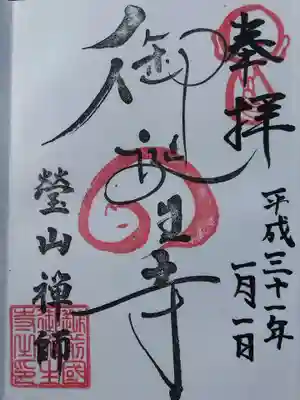 奉拝
平成三十一年
一月一日
御誕生寺
瑩山禅師